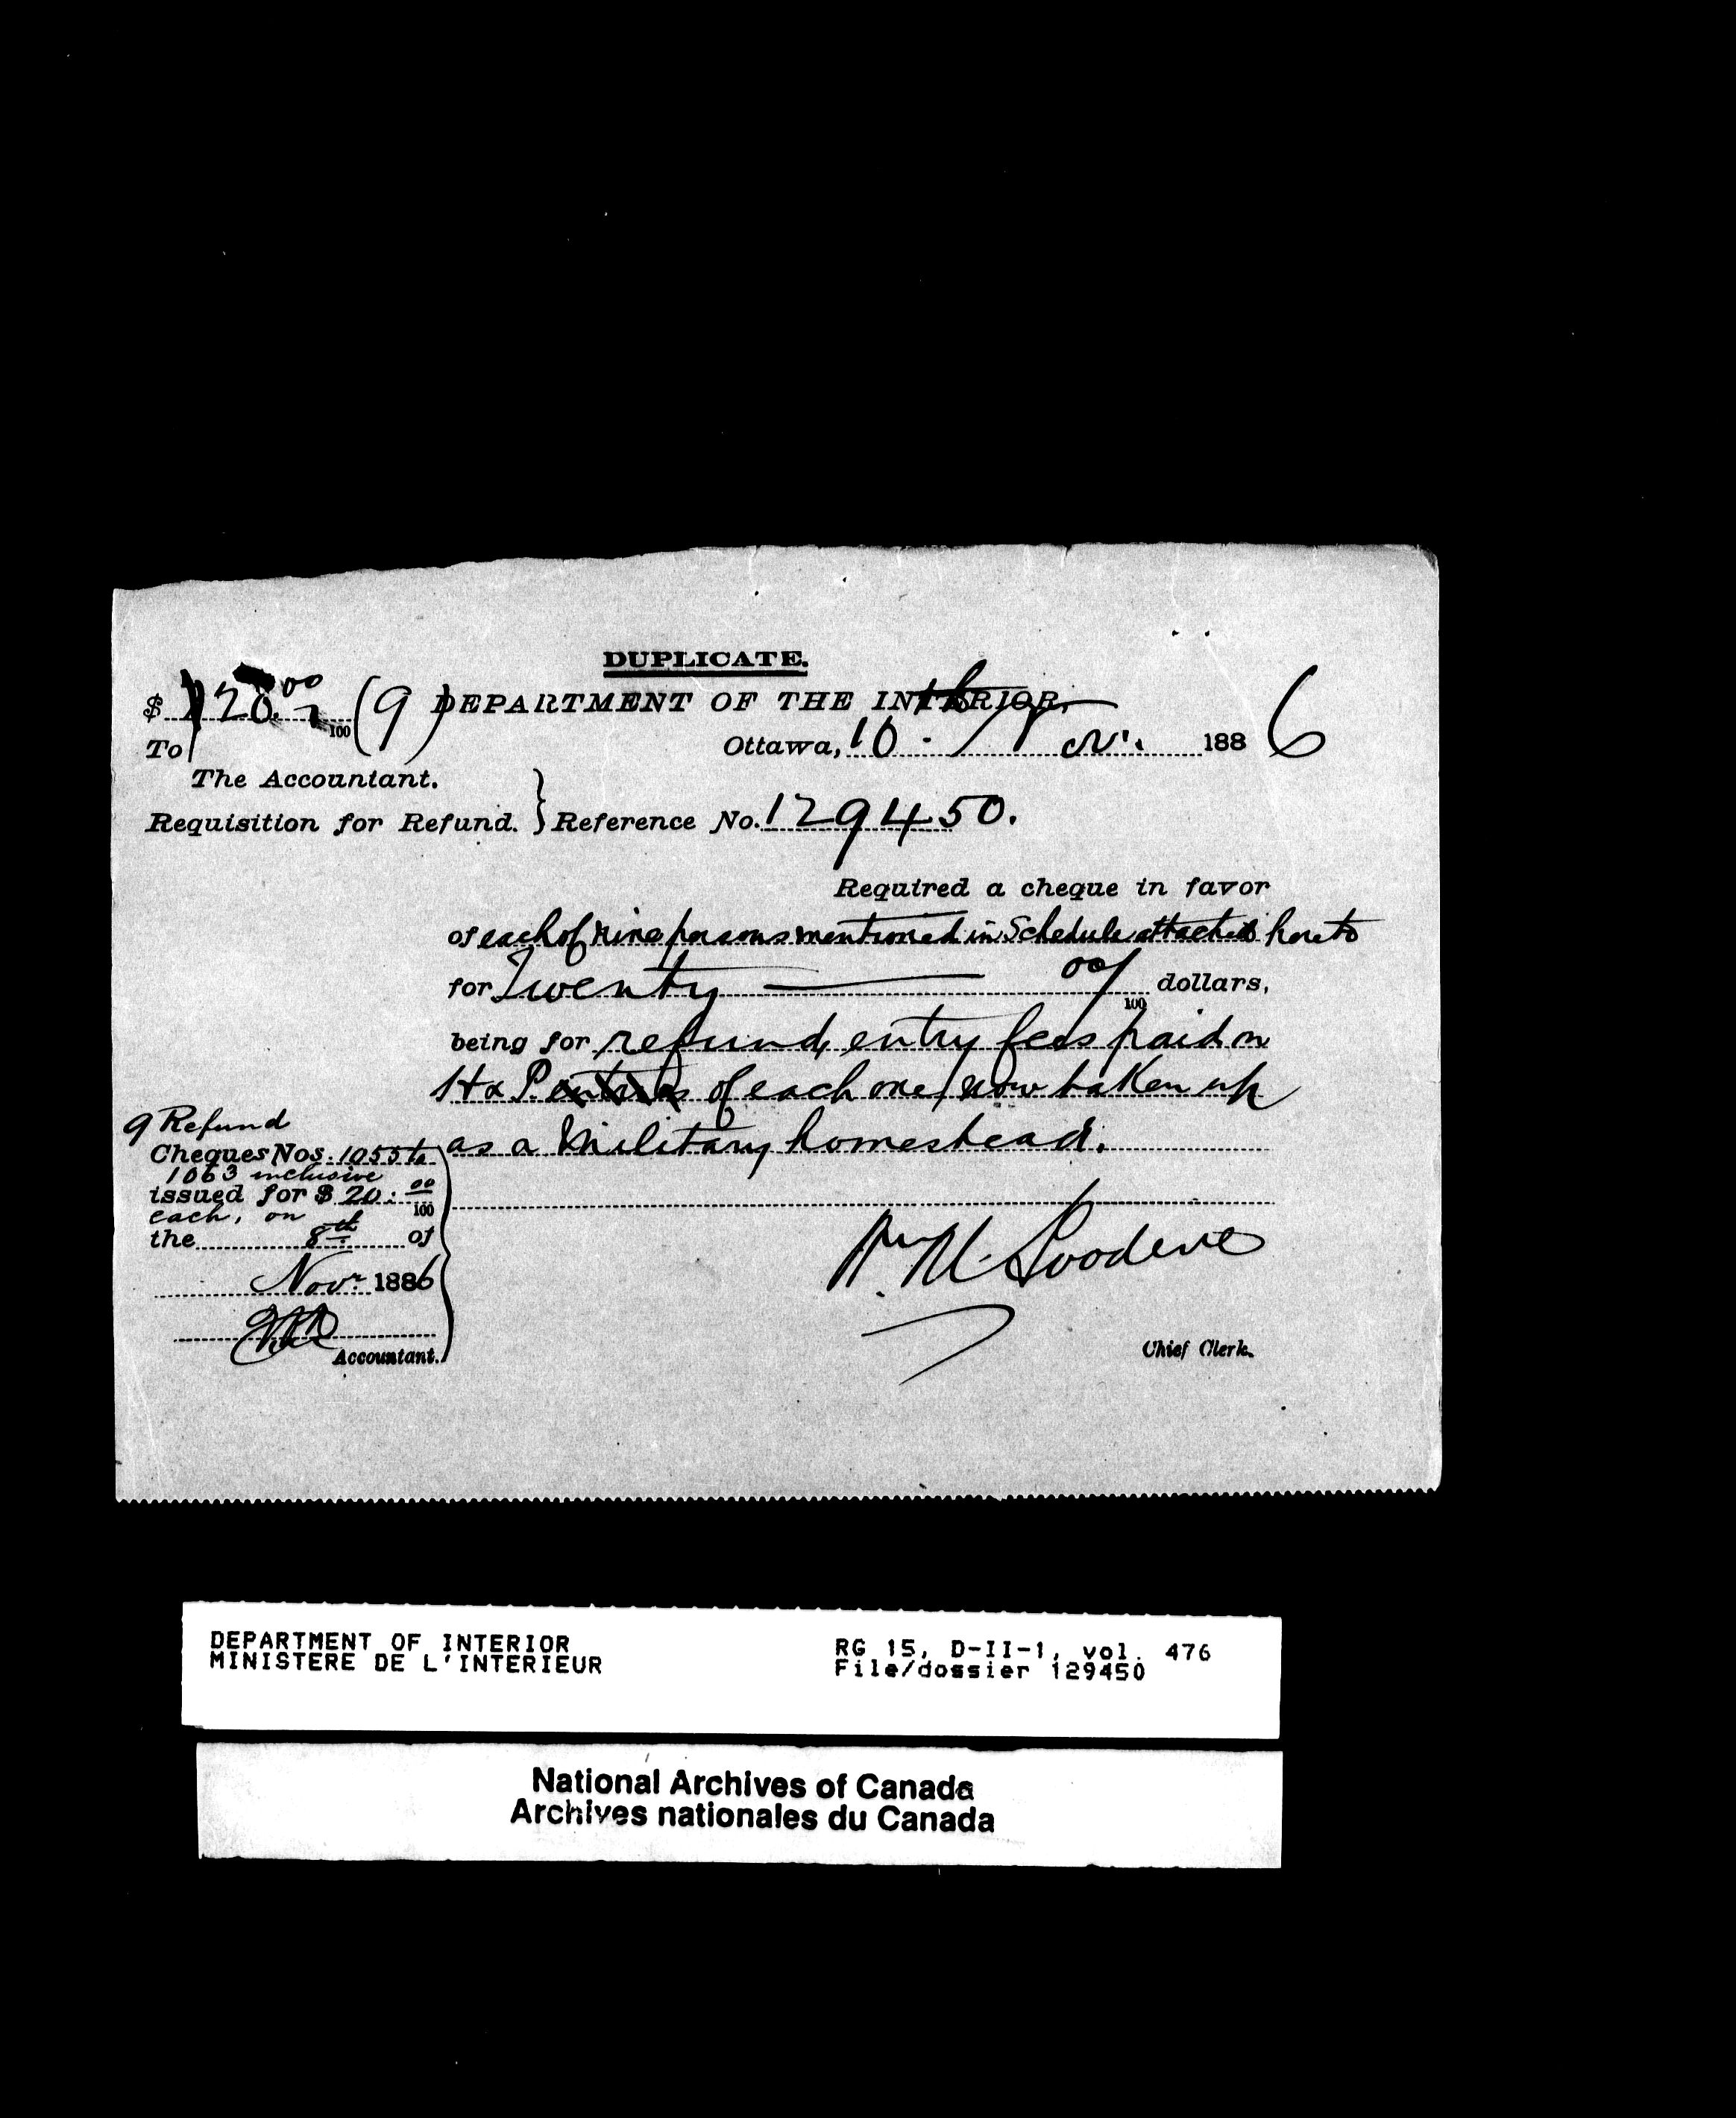 DUPLICATE.
$ 20.00/100 (9) DEPARTMENT OF THE INTERIOR,
To Ottawa, 10. Nov. 1886
The Accountant.
Requisition for Refund. } Reference No. 129450.
Required a cheque in favor
of each of nine persons mentioned in Schedule attached hereto
for Twenty 00/100 dollars,
being for refund, entry fees paid on
H & P. of each one, now taken up
as a Military homestead.
9 Refund
Cheques Nos. 1055 to
1063 inclusive
issued for $ 20.00/100
each, on
the 8th of
Novr. 1886
Accountant.
N. M. Goodeve
Chief Clerk.
DEPARTMENT OF INTERIOR
MINISTERE DE L'INTERIEUR
RG 15, D-II-1, vol. 476
File/dossier 129450
National Archives of Canada
Archives nationales du Canada